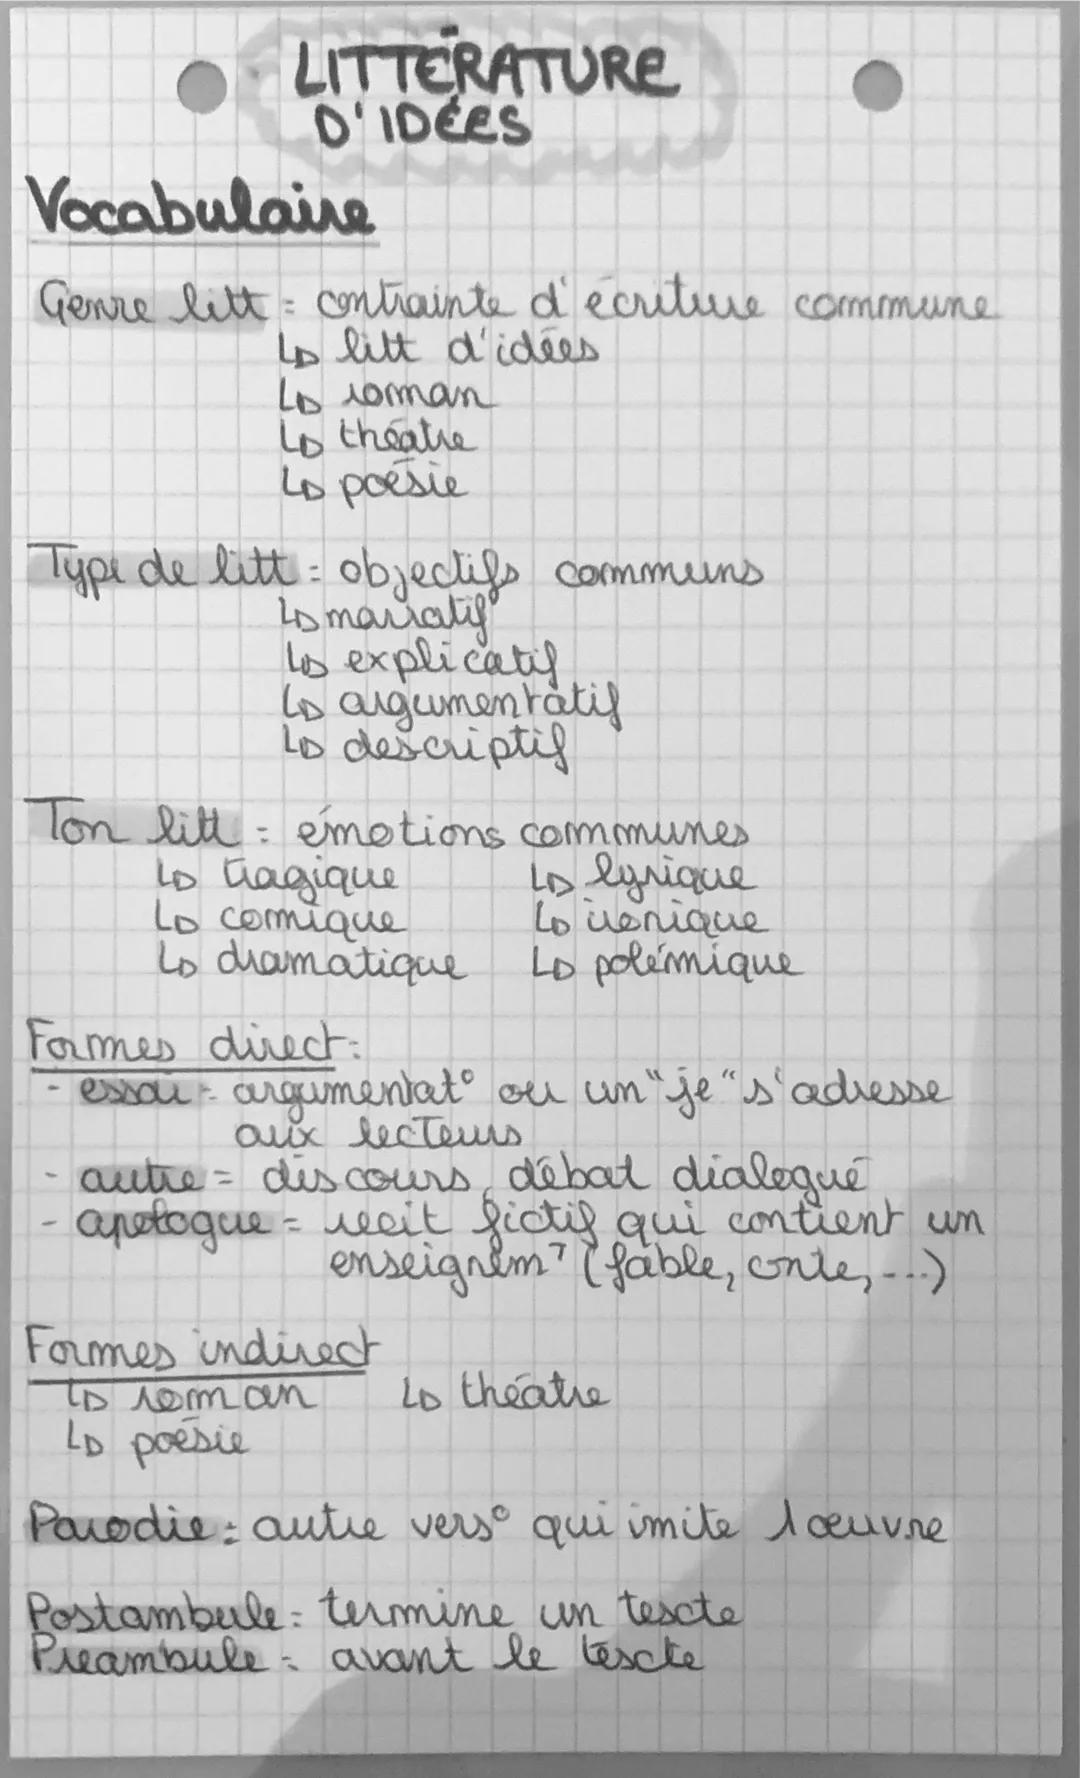 LITTÉRATURE
D'IDÉES
Vocabulaire
Genre litt = contrainte d'écriture commune
↳ litt d'idées
↳ roman
↳ théatre
↳ poésie
Type de litt = objectifs communs
↳ narratif
↳ explicatif
↳ argumentatif
↳ descriptif
Ton litt = émotions communes
↳ tragique ↳ lyrique
↳ comique ↳ ironique
↳ dramatique ↳ polémique
Formes direct:
- essai = argumentat° ou un "je" s'adresse
aux lecteurs
- autre = discours, débat dialogué
- apologue = récit fictif qui contient un
enseignemᵗ (fable, conte, ...)
Formes indirect
↳ roman ↳ théatre
↳ poésie
Parodie = autre vers° qui imite l'oeuvre
Postambule = termine un texte
Préambule = avant le texte